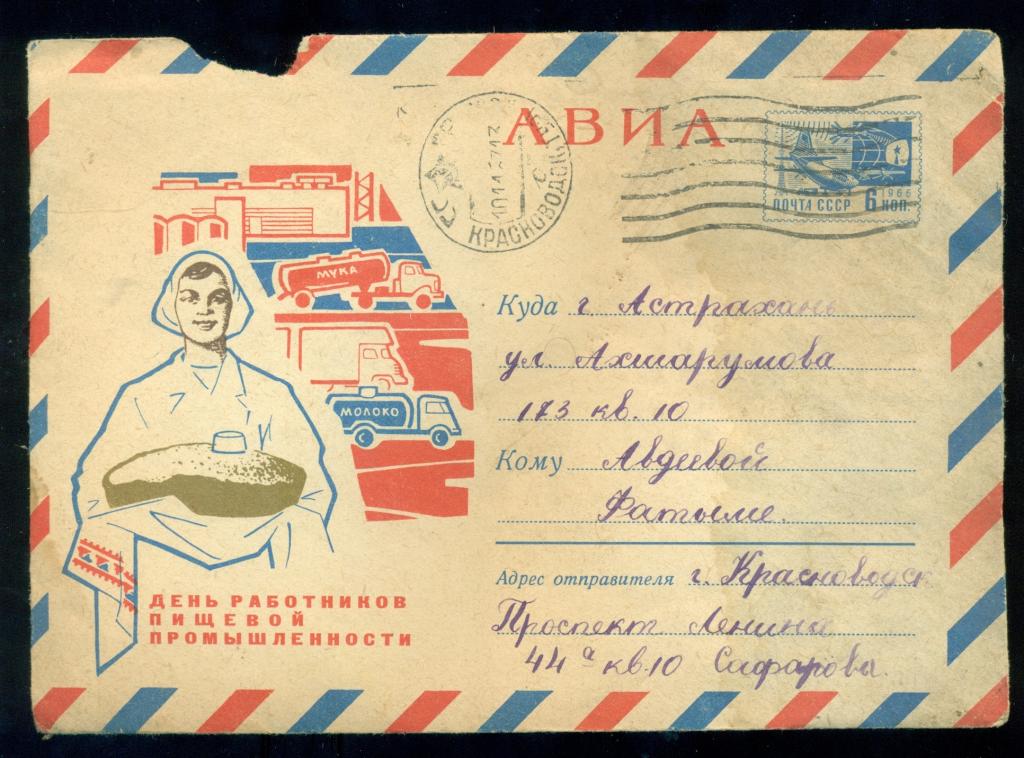 АВИА
КРАСНОВОДСК
ПОЧТА СССР 1966 6 КОП.
МУКА
МОЛОКО
ДЕНЬ РАБОТНИКОВ
ПИЩЕВОЙ
ПРОМЫШЛЕННОСТИ
Куда г. Астрахань
ул. Ахшарумова
173 кв. 10
Кому Авдеевой
Фатыме.
Адрес отправителя г. Красноводск
Проспект Ленина
44 а кв. 10 Сафарова.